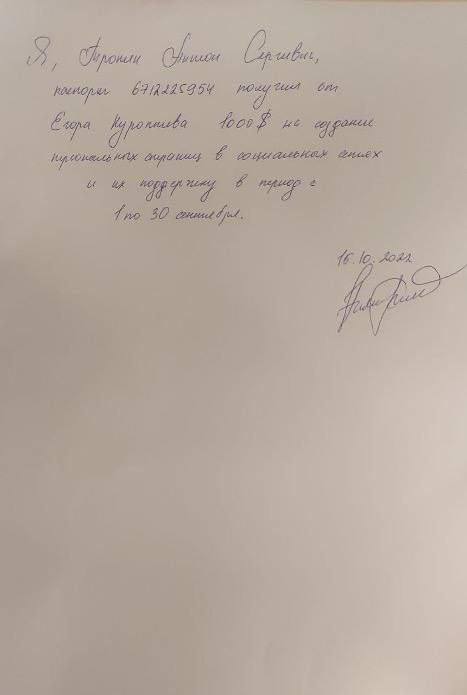 Я, Тропин Антон Сергевич,
паспорт 6712225954 получил от
Егора Куроптева 1000$ на создание
персональных страниц в социальных сетях
и их поддержку в период с
1 по 30 сентября.
15.10.2022